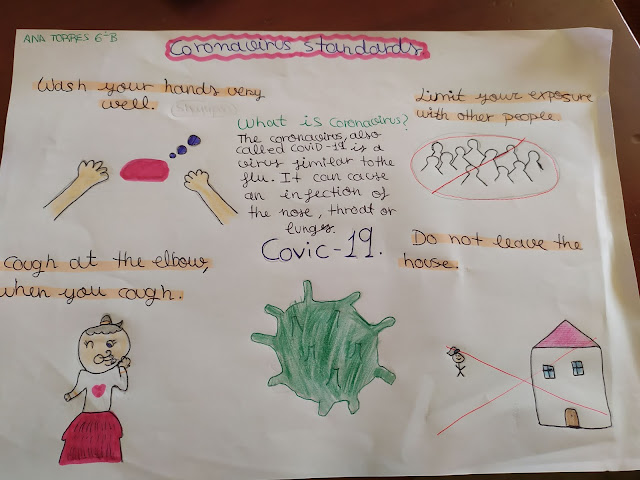 ANA TORRES 6ºB
Coronavirus standards
Wash your hands very
well.
What is coronavirus?
The coronavirus, also
called COVID-19 is a
virus similar to the
flu. It can cause
an infection of
the nose, throat or
lungs.
Covic-19.
Limit your exposure
with other people
Do not leave the
house.
cough at the elbow,
when you cough.